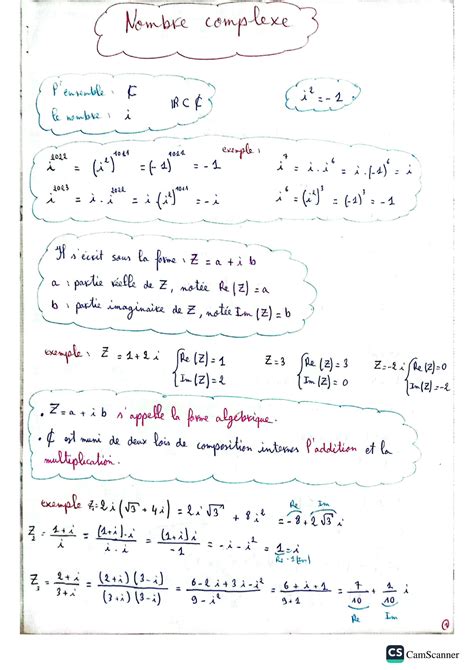 Nombre complexe
l'ensemble : ₵ IR ⊂ ₵ i² = -1
le nombre : i
exemple :
i²⁰²² = (i²)¹⁰¹¹ = (-1)¹⁰²¹ = -1 i⁷ = i . i⁶ = i . (-1)⁶ = i
i²⁰²³ = i . i²⁰²² = i (i²)¹⁰¹¹ = -i i⁶ = (i²)³ = (-1)³ = -1
Il s'écrit sous la forme : Z = a + i b
a : partie réelle de Z, notée Re(Z) = a
b : partie imaginaire de Z, notée Im(Z) = b
exemple : Z = 1 + 2 i { Re(Z) = 1 Z = 3 { Re(Z) = 3 Z = -2 i { Re(Z) = 0
Im(Z) = 2 Im(Z) = 0 Im(Z) = -2
. Z = a + i b s'appelle la forme algébrique.
. ₵ est muni de deux lois de composition internes l'addition et la
multiplication.
exemple Z = 2 i (√3 + 4i) = 2 i √3 + 8 i² = -8 + 2√3 i
Re Im
Z₂ = (1+i)/i = (1+i)·i/(i·i) = (1+i)i/(-1) = -i - i² = 1 - i
Z₃ = (2+i)/(3+i) = (2+i)(3-i)/((3+i)(3-i)) = (6-2i+3i-i²)/(9-i²) = (6+i+1)/(9+1) = 7/10 + 1/10 i
Re Im
CS CamScanner